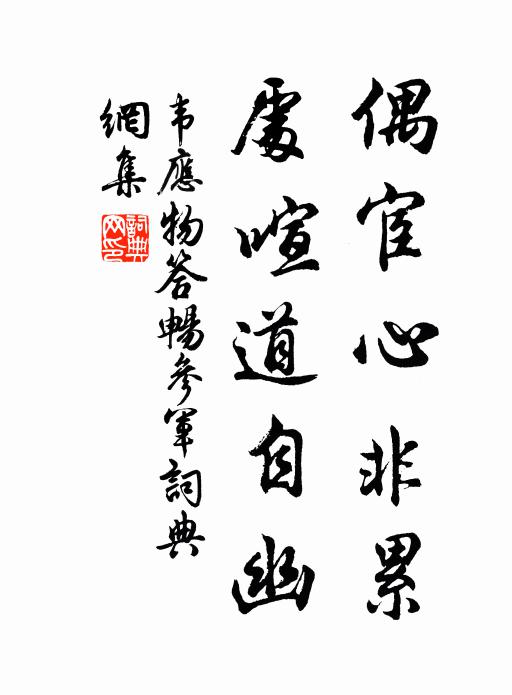 偶宦心非累
處喧道自幽
韦應物答暢參軍詞典
網集
詞典
网印